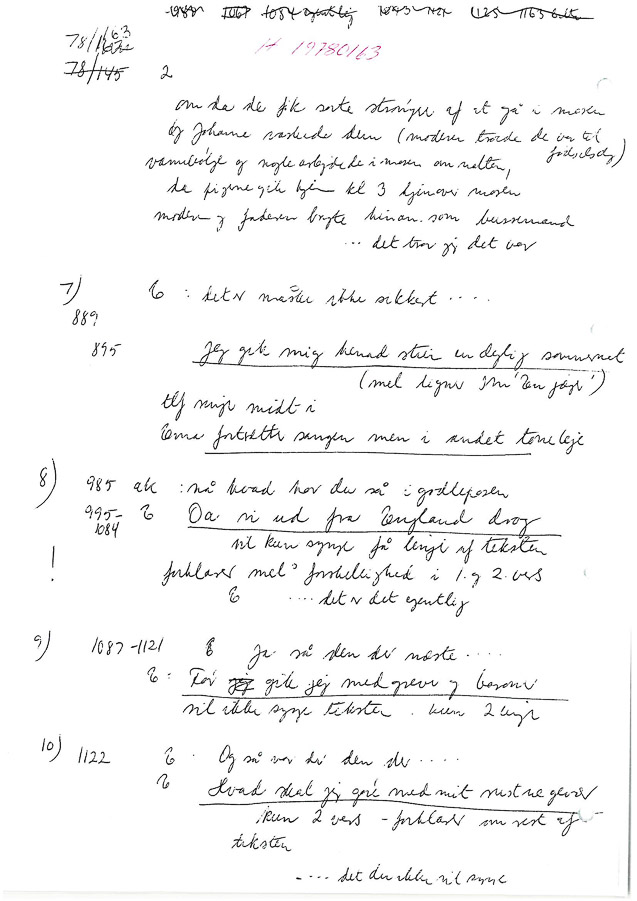 78/1/63
78/145
H 1978/163
2
om da de fik sorte strømper af at gå i mosen
og Johanne vaskede dem (moderen troede de var til
fødselsdag)
vammelbølge og nogle arbejdede i mosen om natten,
da pigerne gik hjem kl 3 hjem over mosen
moderen og faderen brugte hinan. som bussemand
... det tror jeg det var
7) E : det er måske ikke sikkert ....
889
895 Jeg gik mig henad stien en dejlig sommernat
(mel ligner "En jæger")
tlf ringer midt i
Ema fortsætter sangen men i andet toneleje
8) 985 ak : nå hvad har du så i godteposen
995- E Da vi ud fra England drog
1084
! vil kun synge få linjer af teksten
forklarer mel's forskellighed i 1. og 2. vers
E .... det er det egentlig
9) 1087-1121 E Ja så den der næste ....
E : Før gik jeg med greve og baroner
vil ikke synge teksten . kun 2 linjer
10) 1122 E . Og så var der den der ....
E Hvad skal jeg gøre med mit
kun 2 vers - forklarer om rest af
teksten
.... det du ikke vil synge